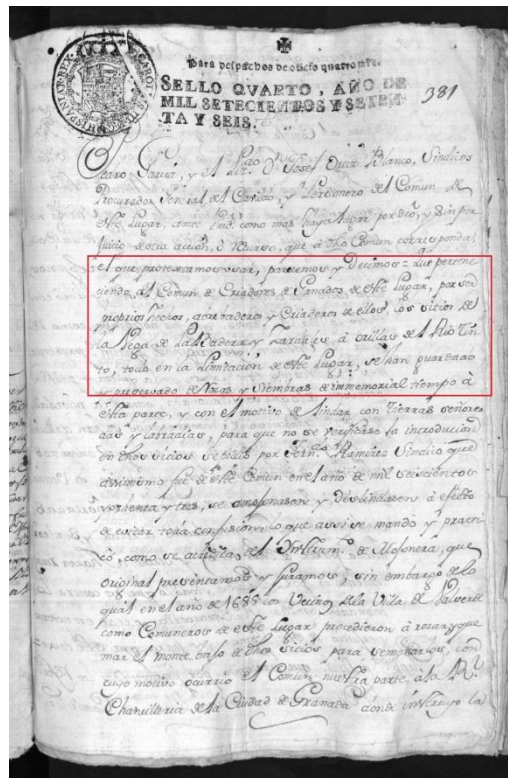 CAROL
HISPANIAR. REX
Para despachos de oficio quatro mrs.
SELLO QVARTO, AÑO DE
MIL SETECIENTOS Y SETEN-
TA Y SEIS.
381
y el Josef Blanco, Sindicos
Procurador General del Cavildo, y Personero del Comun de
este Lugar, ante Vmd. como mas haya lugar por dro, y sin per
juicio de otra accion, ò recurso, que à dho Comun corresponda,
el que protextamos usar, parecemos y Decimos: Que pertene
ciendo al Comun de Criadores de Ganados de este Lugar, por ser
proprios hechos, y Criaderos de ellos los sitios de
la Vega de la y à orillas de el Rio Tin
to, todo en la Limitacion de este Lugar, se han guardado
y preservado de y Siembras de immemorial tiempo à
esta parte, y con el motivo de lindar con Tierras señorea
das y labradias, para que no se verificase la introducion
en dhos sitios se pidiò por Ramirez Sindico que
assimismo fue de este Comun en el año de mil seiscientos
y tres, se amojonasen y Deslindasen à efecto
de evitar toda confusion; lo que assi se mando y practi
cò, como se acredita del Instrum.to de Mojonera, que
original presentamos y juramos; sin embargo de lo
qual en el año de 1685 Vecinos de la Villa de Valverde
como Comuneros de este Lugar procedieron à rozar y que
mar el monte bajo de dhos sitios para sembrarlos, con
cuyo motivo ocurriò el Comun nuestra parte à la R.l
Chancilleria de la Ciudad de Granada donde la